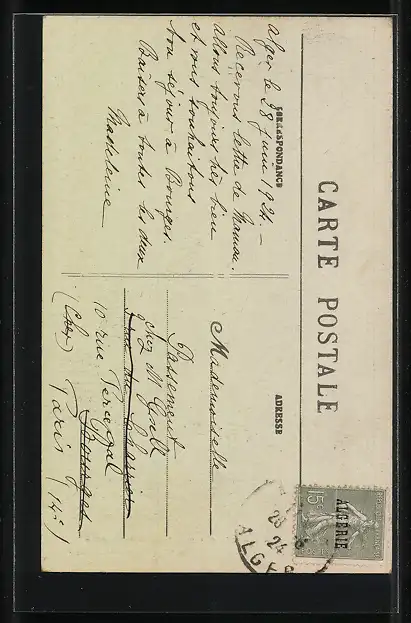 CARTE POSTALE
CORRESPONDANCE
Alger le 28 Juin 1924. —
Recevons lettre de Maman.
Allons toujours très bien
et vous souhaitons
bon séjour à Bourges.
Baisers à toutes les deux
Madeleine
ADRESSE
Mademoiselle
Passement
chez M
10 rue
Bourges
Paris
(Cher)
ALGERIE
15c
ALGER